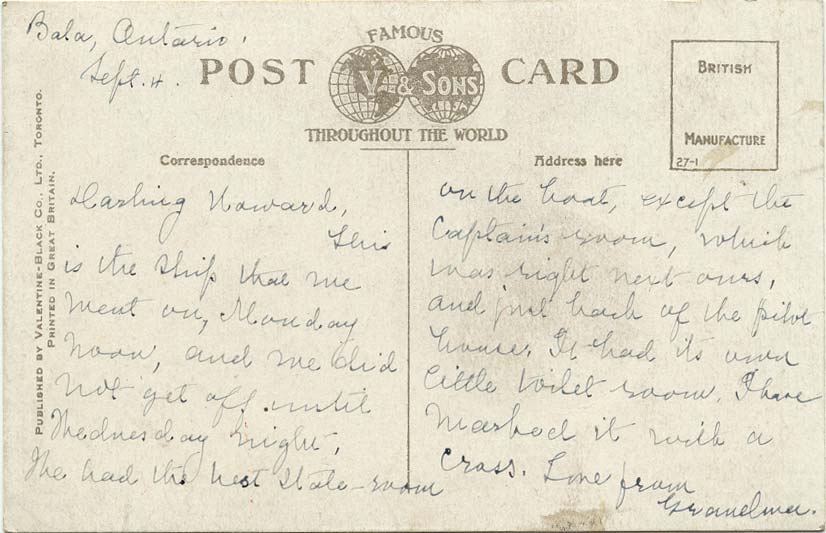 Bala, Ontario,
Sept. 4.
FAMOUS
POST V. & SONS CARD
THROUGHOUT THE WORLD
BRITISH
MANUFACTURE
27-1
PUBLISHED BY VALENTINE-BLACK CO., LTD., TORONTO.
PRINTED IN GREAT BRITAIN.
Correspondence
Darling Howard,
This
is the ship that we
went on, Monday
noon, and we did
not get off until
Wednesday night,
We had the best state-room
Address here
on the boat, except the
Captain's room, which
was right next ours,
and just back of the pilot
house. It had its own
little toilet room. I have
marked it with a
cross. Love from
Grandma.